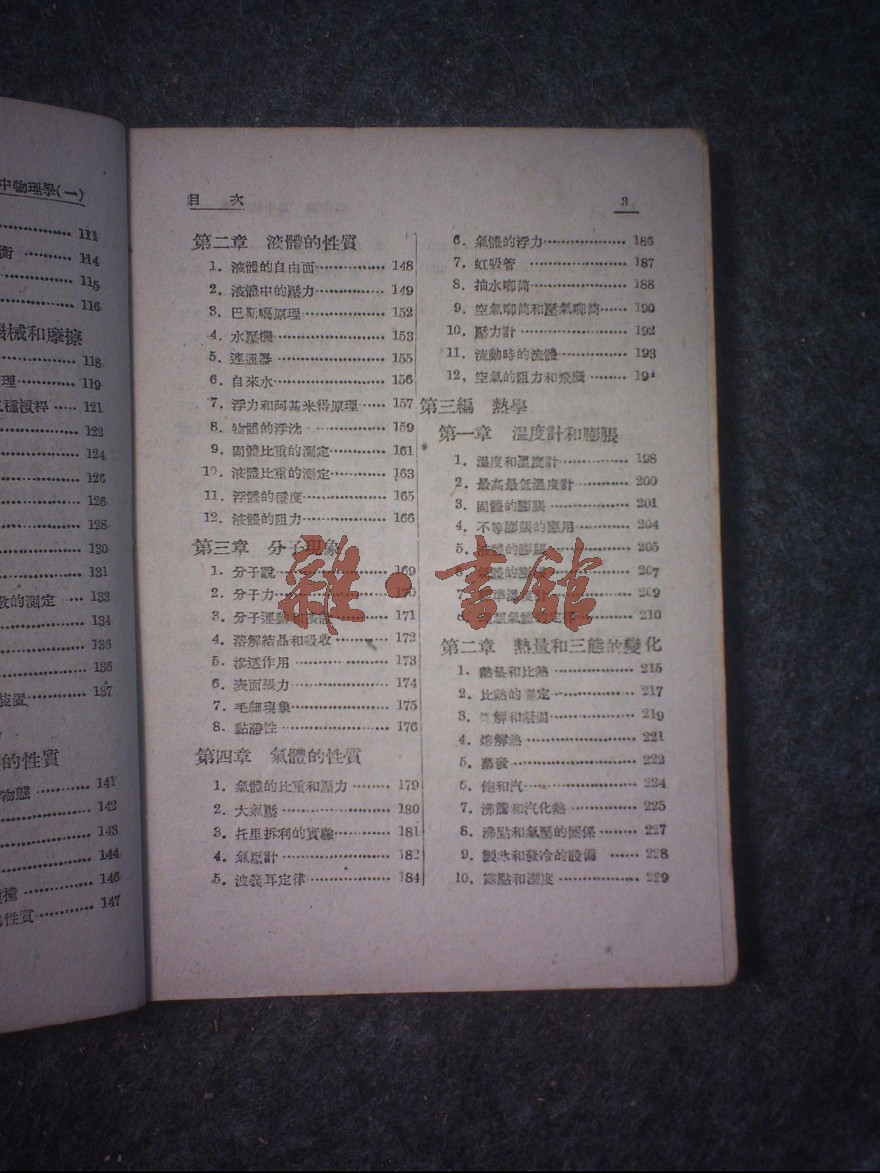 中物理學(一)
111
衡 114
115
116
機械和摩擦
118
理 119
種槓桿 121
122
124
126
126
128
130
131
數的測定 133
134
135
136
裝置 137
的性質
物態 141
142
143
144
撞 146
性質 147
目 次
3
第二章 液體的性質
1. 液體的自由面 148
2. 液體中的壓力 149
3. 巴斯噶原理 152
4. 水壓機 153
5. 連通器 155
6. 自來水 156
7. 浮力和阿基米得原理 157
8. 物體的浮沈 159
9. 固體比重的測定 161
10. 液體比重的測定 163
11. 浮體的穩度 165
12. 液體的阻力 166
第三章 分子現象
1. 分子說 169
2. 分子力 170
3. 分子運動和 171
4. 溶解結晶和吸收 172
5. 滲透作用 173
6. 表面張力 174
7. 毛細現象 175
8. 黏滯性 176
第四章 氣體的性質
1. 氣體的比重和壓力 179
2. 大氣壓 180
3. 托里拆利的實驗 181
4. 氣壓計 182
5. 波義耳定律 184
6. 氣體的浮力 186
7. 虹吸管 187
8. 抽水唧筒 188
9. 空氣唧筒和壓氣唧筒 190
10. 壓力計 192
11. 流動時的流體 193
12. 空氣的阻力和飛機 194
第三編 熱學
第一章 溫度計和膨脹
1. 溫度和溫度計 198
2. 最高最低溫度計 200
3. 固體的膨脹 201
4. 不等膨脹的應用 204
5. 液體的膨脹 205
6. 氣體的 207
7. 209
8. 210
第二章 熱量和三態的變化
1. 熱量和比熱 215
2. 比熱的測定 217
3. 熔解和凝固 219
4. 熔解熱 221
5. 蒸發 222
6. 飽和汽 224
7. 沸騰和汽化熱 225
8. 沸點和氣壓的關係 227
9. 製氷和發冷的設備 228
10. 露點和濕度 229
雜·書館